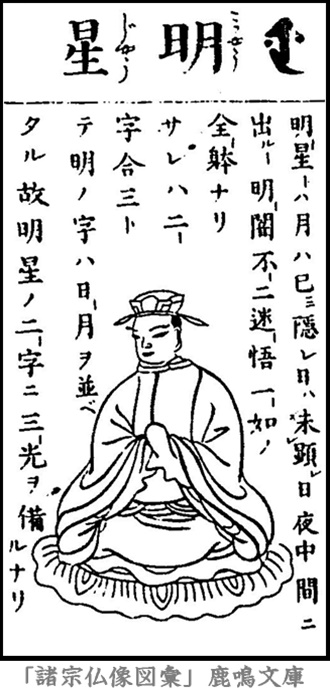 明星
明星トハ月ハ已ニ隠レ日ハ未顕レ日夜中間ニ
出ルー明闇不ニ迷悟一如ノ
全躰ナリ
サレハニー
字合三ト
テ明ノ字ハ日月ヲ並ベ
タル故明星ノ二字ニ三光ヲ備ルナリ
「諸宗仏像図彙」鹿鳴文庫